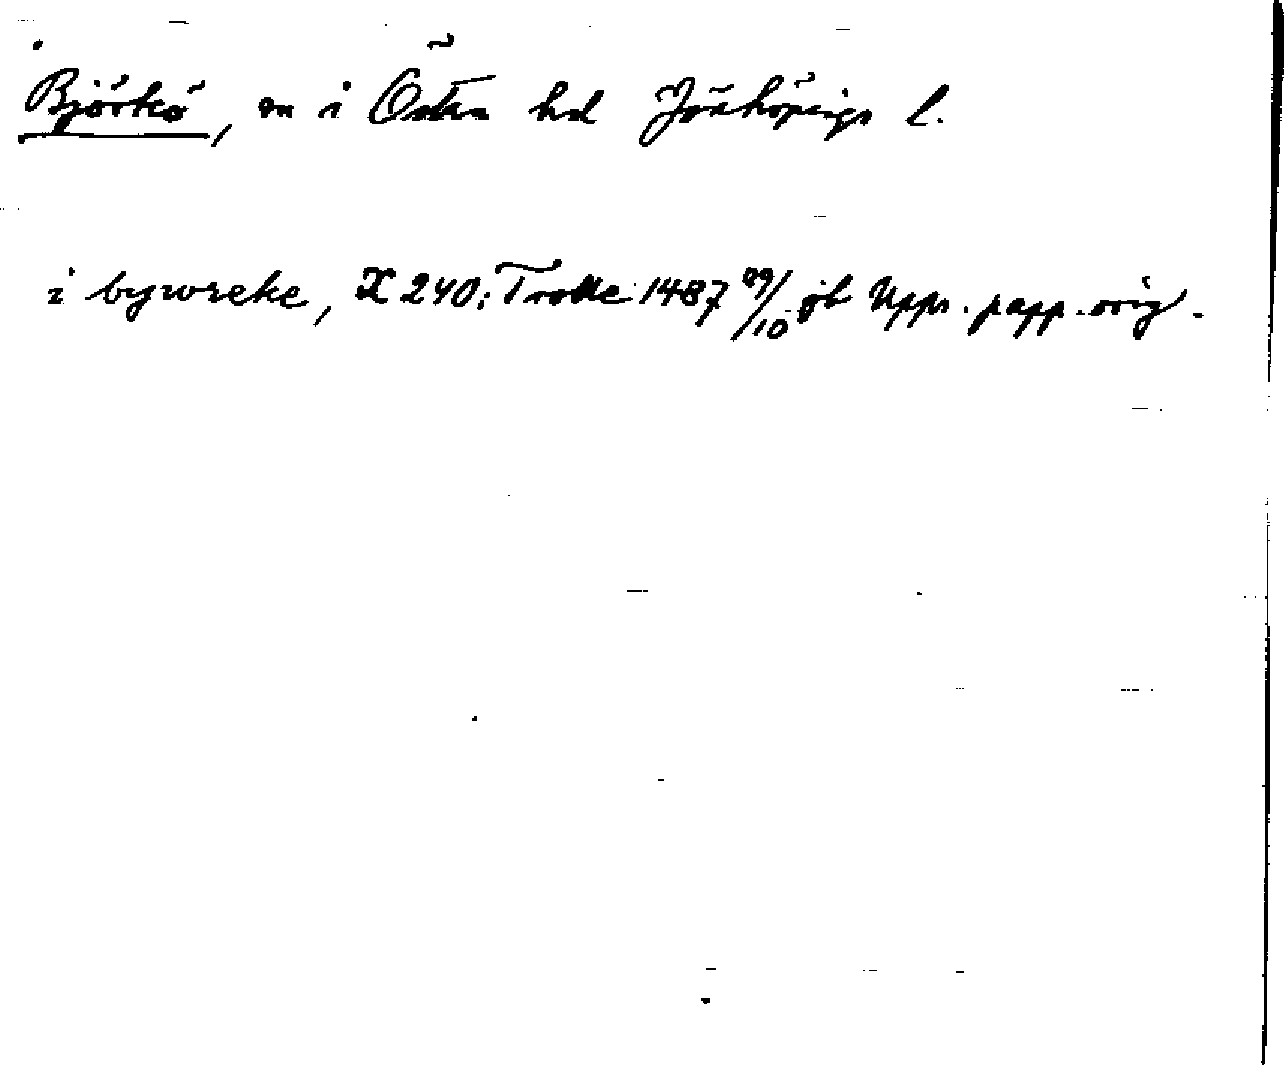 Björkö, sn i Östra hd Jönköpings l.
i bywreke, X 240: Trolle 1487 29/10 jb Upps. papp. orig.